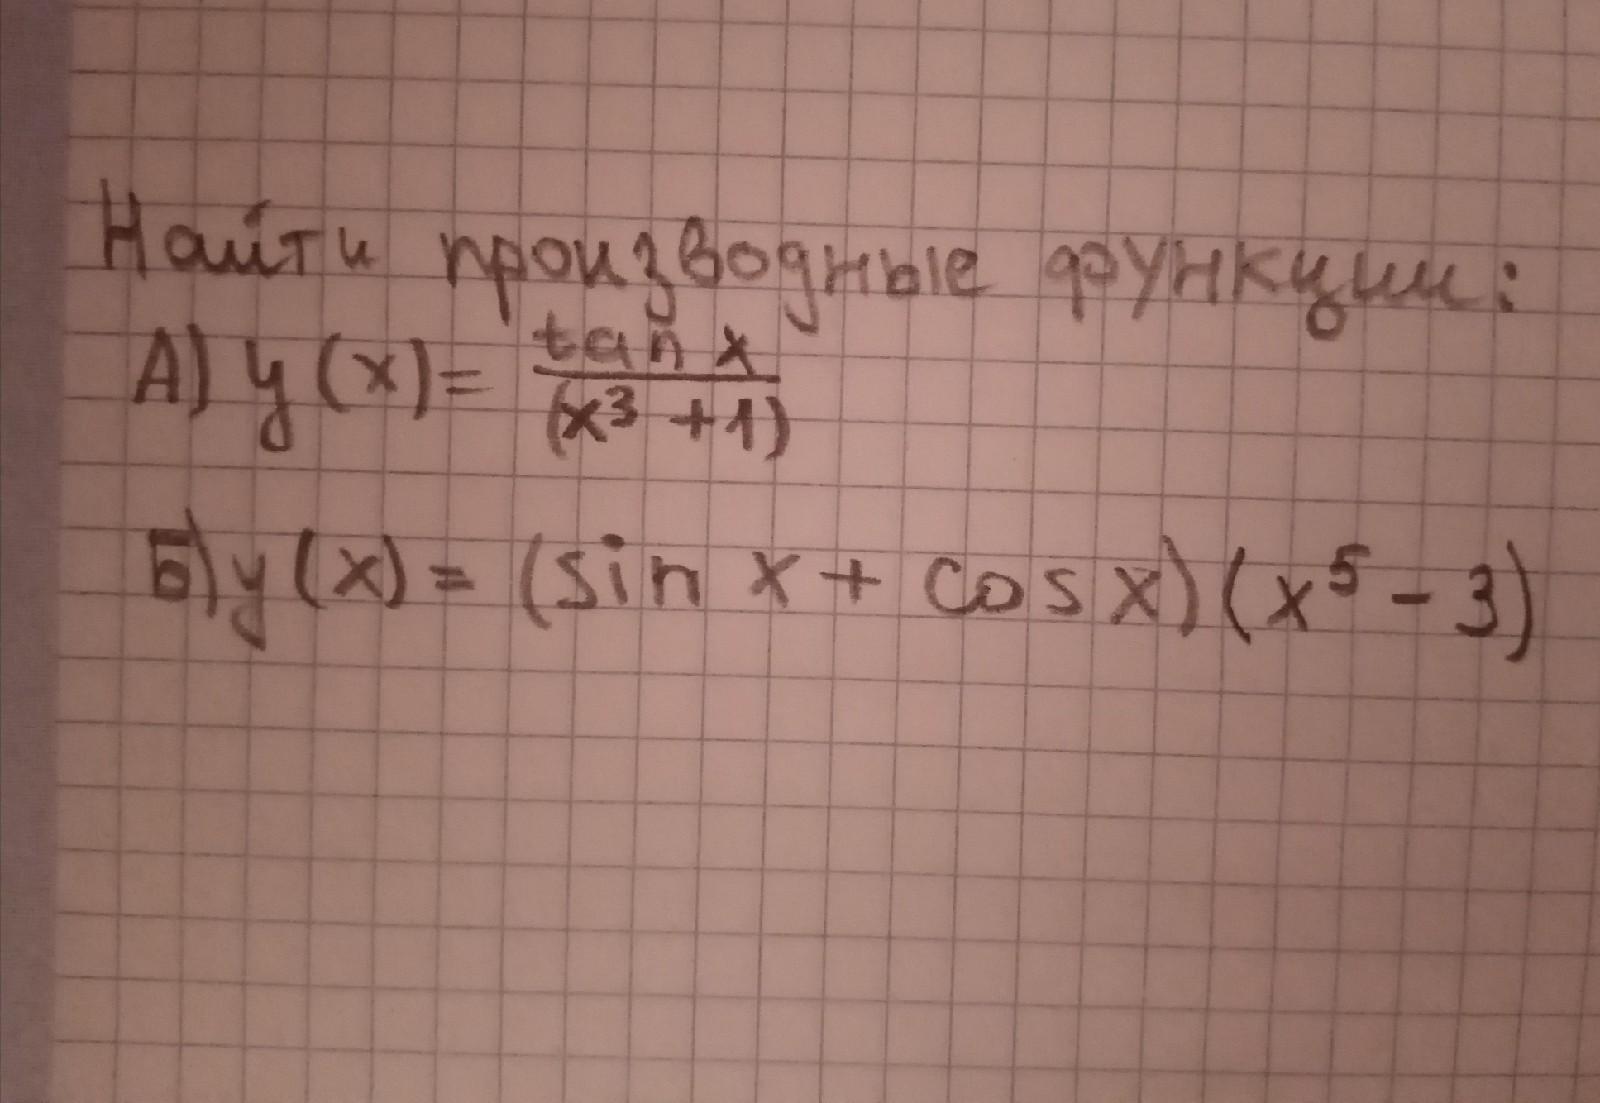 Найти производные функции:
А) y(x) = tan x / (x³ + 1)
Б) y(x) = (sin x + cos x)(x⁵ - 3)